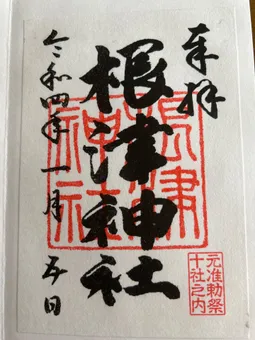 奉拝
根津神社
令和四年一月五日
根津
神社
元准勅祭
十社之内